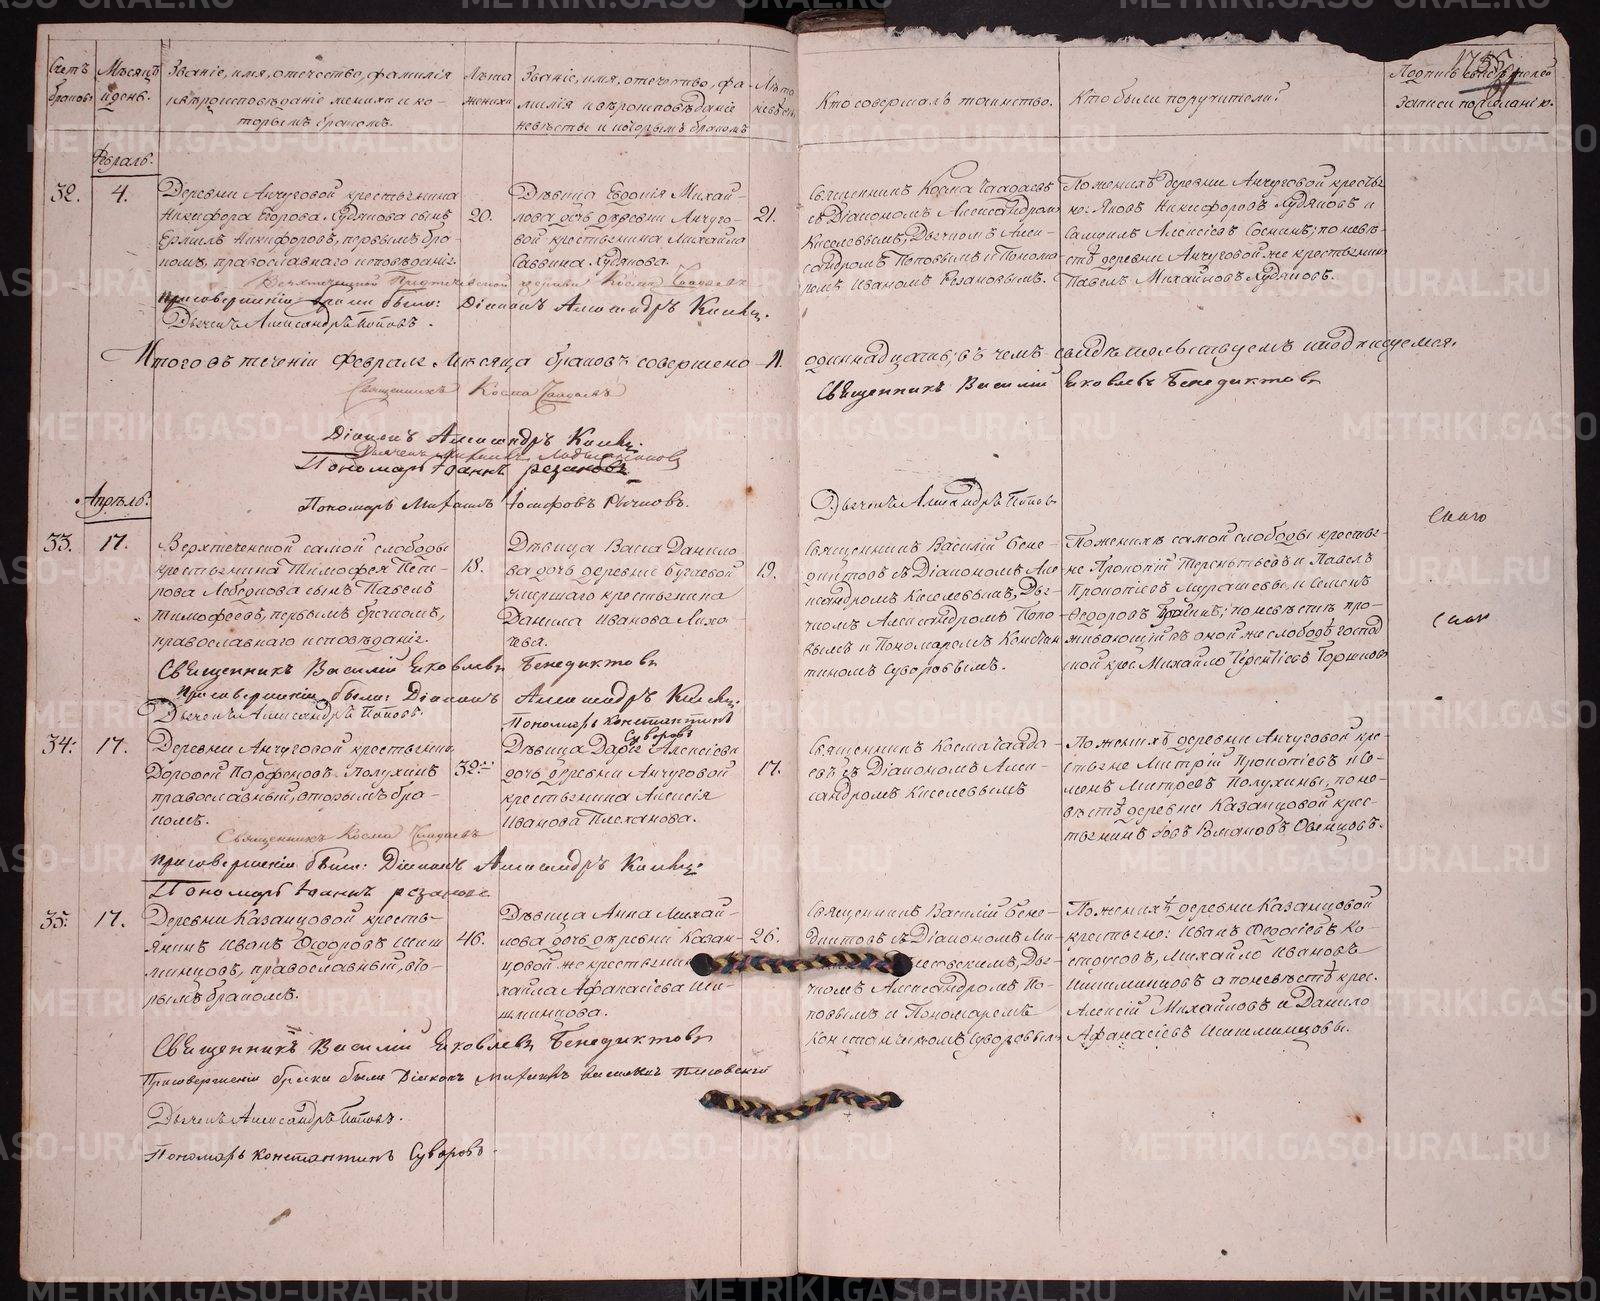 Счетъ браковъ.
Мѣсяцъ и день.
Званіе, имя, отечество, фамилія
и вѣроисповѣданіе жениха и ко-
торымъ бракомъ.
Лѣта жениха
Званіе, имя, отечество, фа-
милія и вѣроисповѣданіе
невѣсты и которымъ бракомъ
Лѣта невѣсты
Кто совершалъ таинство.
Кто были поручители?
Подпись свидѣтелей
записи по желанію.
Февраль.
32.
4.
Деревни Анчуговой крестьянина
Никифора Егорова Худякова сынъ
Ермилъ Никифоровъ, первымъ бра-
комъ, православнаго исповѣданія.
20.
Дѣвица Евдокія Михай-
лова дочь деревни Анчуго-
вой крестьянина Михайла
Саввина Худякова.
21.
Священникъ Косма Чаадаевъ
съ Діакономъ Александромъ
Киселевымъ, Дьячкомъ Алек-
сандромъ Поповымъ и Понома-
ремъ Иваномъ Резановымъ.
По женихѣ деревни Анчуговой крестья-
не: Яковъ Никифоровъ Худяковъ и
Самуилъ Алексѣевъ Соснинъ; по невѣ-
стѣ деревни Анчуговой же крестьянинъ
Павелъ Михайловъ Худяковъ.
церкви Косма Чаадаевъ
При совершеніи брака были: Діаконъ Александръ Киселев
Дьячекъ Александръ Поповъ.
Итого въ теченіи Февраля Мѣсяца браковъ совершено 11. одиннадцать; въ чемъ свидѣтельствуемъ и подписуемся.
Священникъ Косма Чаадаевъ
Священникъ Василій Яковлевъ Бенедиктовъ
Діаконъ Александръ Киселев
Пономарь Іоаннъ Резановъ
Пономарь Михаилъ Іосифовъ Рычковъ.
Дьячекъ Александръ Поповъ
Апрѣль.
33.
17.
Верхтеченской самой слободы
крестьянина Тимофея Пет-
рова Лебедкова сынъ Павелъ
Тимофеевъ, первымъ бракомъ,
православнаго исповѣданія.
18.
Дѣвица Васса Данило-
ва дочь деревни Бугаевой
умершаго крестьянина
Данила Иванова Лиха-
чева.
19.
Священникъ Василій Бене-
диктовъ съ Діакономъ Але-
ксандромъ Киселевымъ, Дья-
чкомъ Александромъ Попо-
вымъ и Пономаремъ Констан-
тиномъ Суворовымъ.
По женихѣ самой слободы крестья-
не Прокопій Терентьевъ и Павелъ
Прокопіевъ Мурашевы, и Семенъ
Федоровъ по невѣстѣ про-
живающій въ оной же слободѣ господ
ской крес. Михайло Терентіевъ Горшковъ
Священникъ Василій Яковлевъ Бенедиктовъ
При совершеніи были: Діаконъ Александръ Киселев
Дьячекъ Александръ Поповъ.
Пономарь Константинъ
Суворовъ
34.
17.
Деревни Анчуговой крестьянинъ
Дорофей Парфеновъ Полухинъ
православный, вторымъ бра-
комъ.
32.
Дѣвица Дарья Алексіева
дочь деревни Анчуговой
крестьянина Алексія
Иванова Плеханова.
17.
Священникъ Косма Чаада-
евъ съ Діакономъ Алек-
сандромъ Киселевымъ
По женихѣ деревни Анчуговой кре-
стьяне Митрій Прокопіевъ и Се-
менъ Митревъ Полухины, по не-
вѣстѣ деревни Казанцовой крес-
тьянинъ Іовъ Романовъ Овенцовъ.
Священникъ Косма Чаадаевъ
При совершеніи были: Діаконъ Александръ Киселев
Пономарь Іоаннъ Резановъ
35.
17.
Деревни Казанцовой кресть-
янинъ Иванъ Федоровъ Шиш-
минцовъ, православный, вто-
рымъ бракомъ.
46.
Дѣвица Анна Михай-
лова дочь деревни Казан-
цовой же крестьянин
хайла Афанасіева Ши-
шминцова.
26.
Священникъ Василій Бене-
диктовъ съ Діакономъ Ми-
совскимъ, Дья-
чкомъ Александромъ По-
повымъ и Пономаремъ
Константиномъ Суворовымъ
По женихѣ деревни Казанцовой
крестьяне: Иванъ Федосіевъ Ко-
споусовъ, Михайло Ивановъ
Шишминцовъ а по невѣстѣ крес.
Алексій Михайловъ и Данило
Афанасіевъ Шишминцовы.
Священникъ Василій Яковлевъ Бенедиктовъ
При совершеніи брака были Діаконъ Михаилъ Васильевъ
Дьячекъ Александръ Поповъ.
Пономарь Константинъ Суворовъ.
METRIKI.GASO-URAL.RU